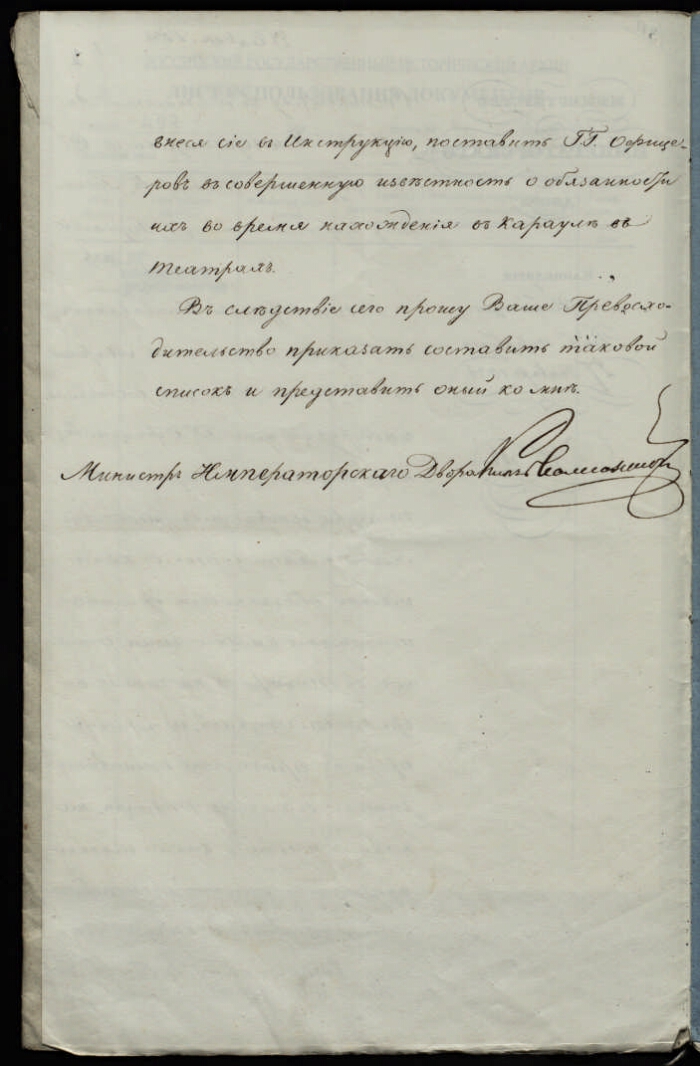 внеся сіе въ Инструкцію, поставить ГГ. Офице-
ровъ въ совершенную извѣстность о обязанности
ихъ во время нахожденія въ Караулѣ въ
театрахъ.
Въ слѣдствіе сего прошу Ваше Превосхо-
дительство приказать составить таковой
списокъ и представить оный ко мнѣ.
Министръ Императорскаго Двора Князь Волконскій